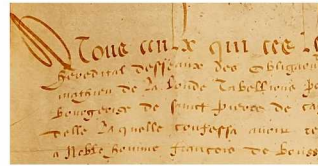 A Tous ceulx qui ces Le
heredital desseaux des obligaon
mathieu de la londe Tabellions po
bourgeoise de sainct pierre de ca
delle Laquelle confessa avoir re
a Noble homme francois de bous